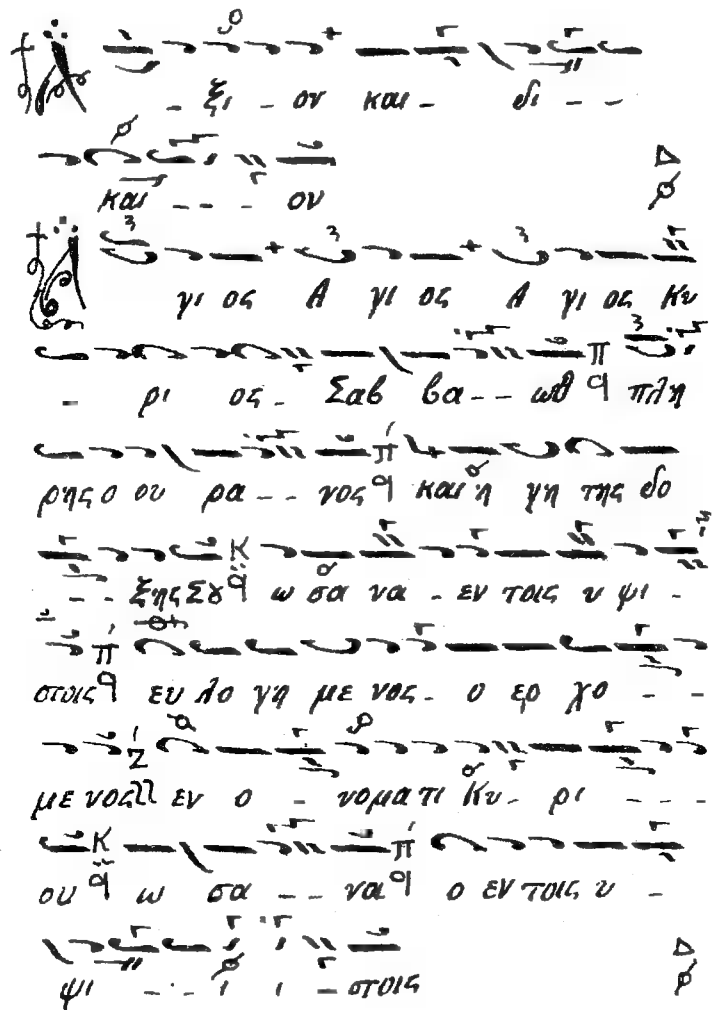 Ἄ - ξι - ον και - δι - -
και - - - ον
Ἄ γι ος Α γι ος Α γι ος Κυ
- ρι ος - Σαβ βα - - ωθ πλη
ρης ο ου ρα - - νος και η γη της δο
- - ξης Σȣ ω σα να - εν τοις υ ψι -
στοις ευ λο γη με νος - ο ερ χο - -
με νος εν ο - νομα τι Κυ - ρι - - -
ου ω σα - - να ο εν τοις υ -
ψι - - - ι ι - στοις